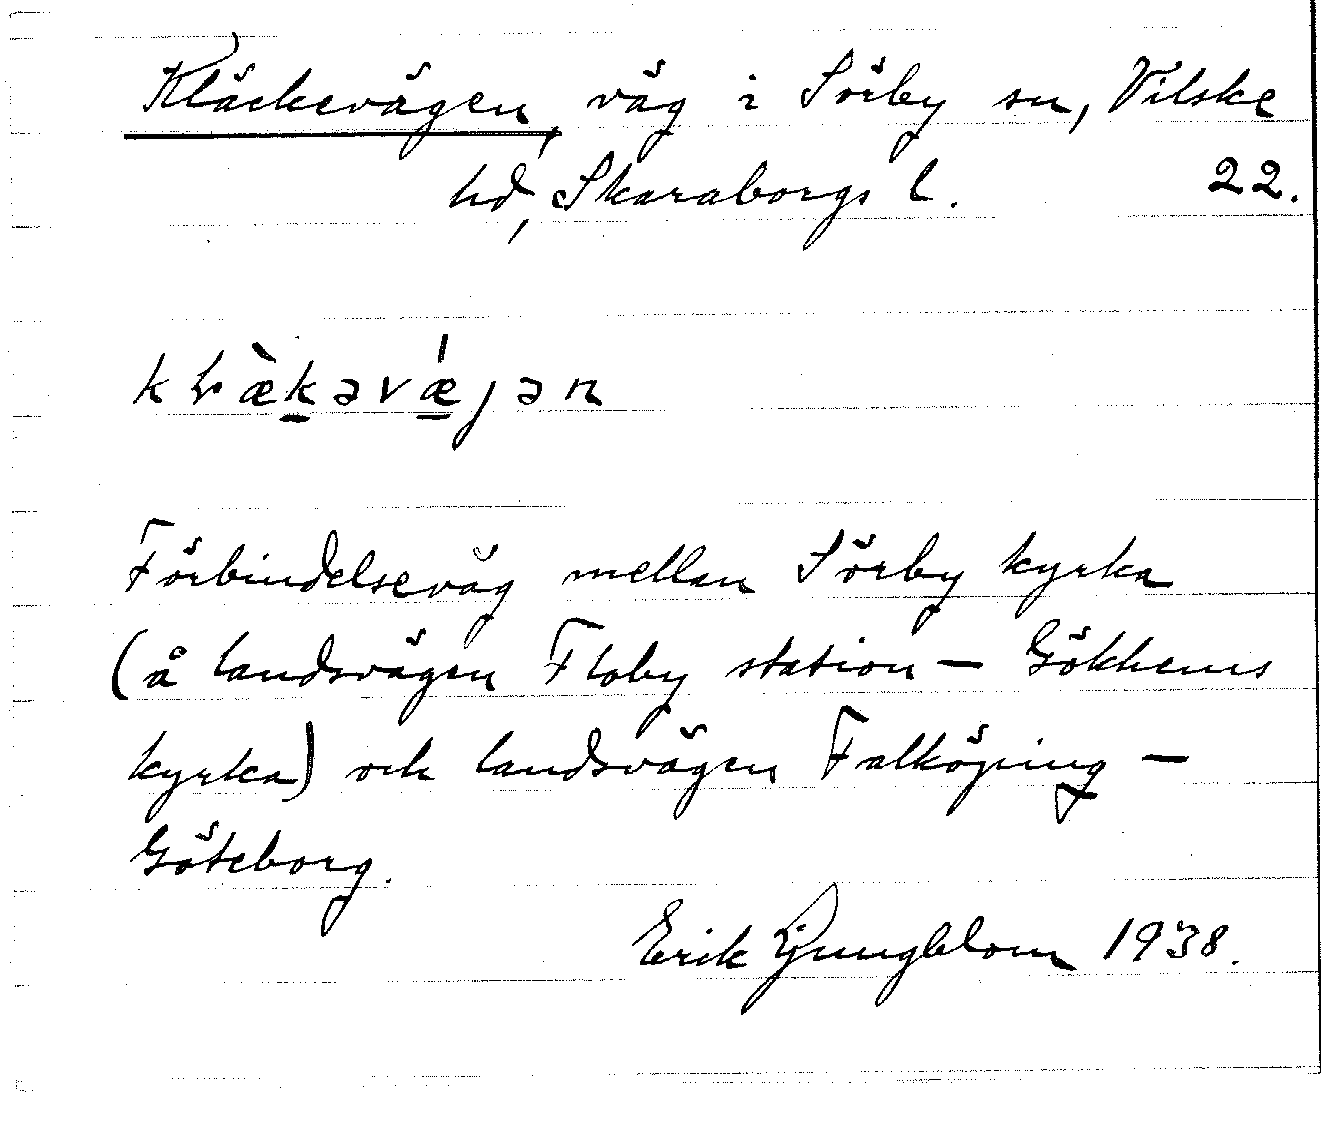 Kläckevägen, väg i Sörby sn, Vilske
hd, Skaraborgs l. 22.
kɫæ̀k̠əvǽ̠jən
Förbindelseväg mellan Sörby kyrka
(å landsvägen Floby station – Gökhems
kyrka) och landsvägen Falköping –
Göteborg.
Erik Ljungblom 1938.